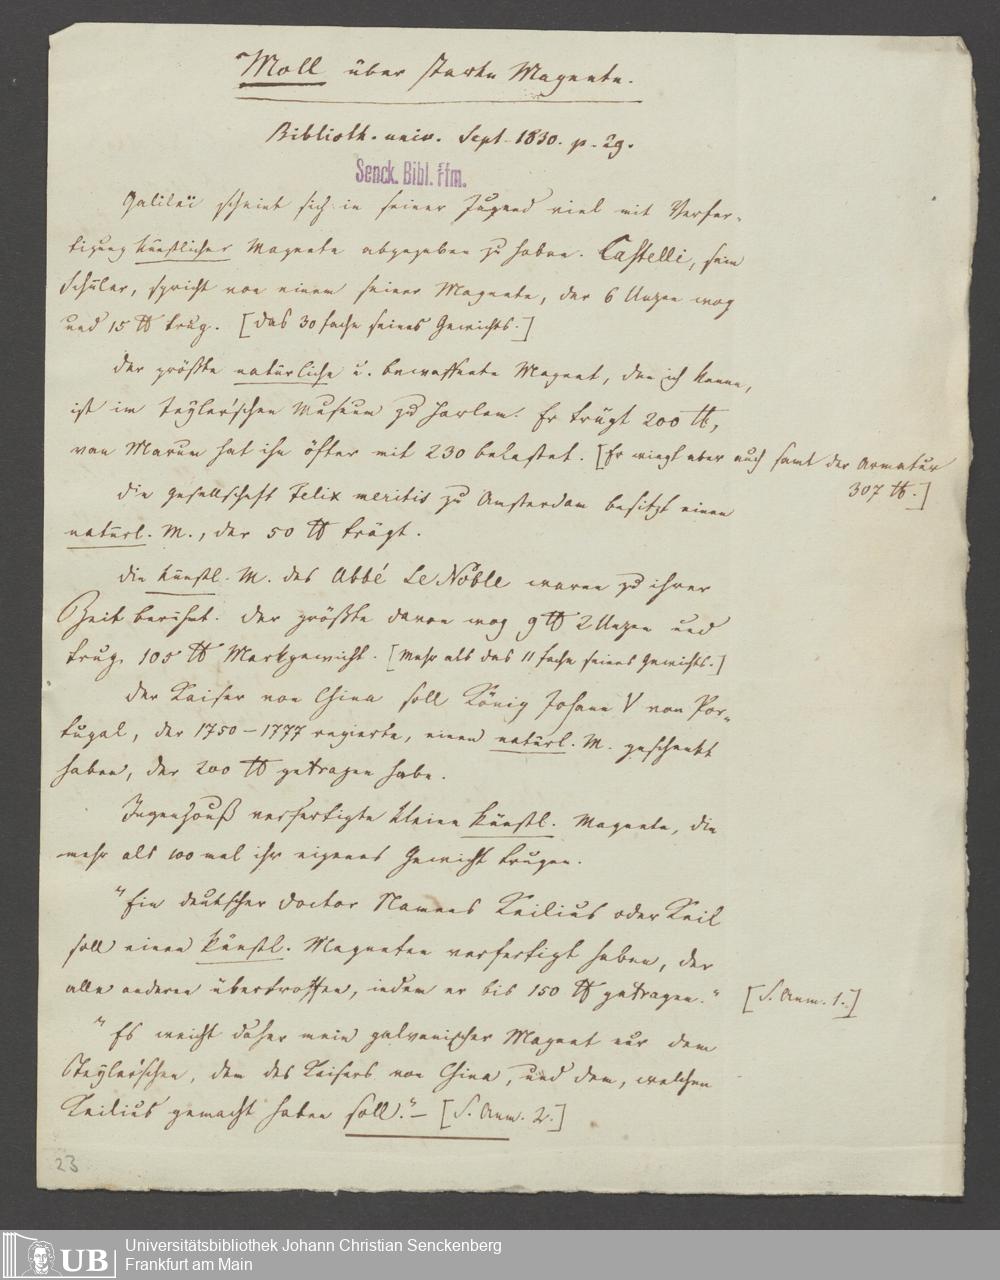 Moll über starke Magnete.
Biblioth. univ. Sept. 1830. p. 29.
Senck. Bibl. Ffm.
Galilei scheint sich in seiner Jugend viel mit Verfer-
tigung künstlicher Magnete abgegeben zu haben. Castelli, sein
Schüler, spricht von einem seiner Magnete, der 6 Unzen wog
und 15 ℔ trug. [das 30fache seines Gewichts.]
Der größte natürliche u. bewaffnete Magnet, den ich kenne,
ist im Teyler'schen Museum zu Harlem. Er trägt 200 ℔,
van Marum hat ihn öfter mit 230 belastet. [Er wiegt aber auch samt der Armatur
307 ℔.]
Die Gesellschaft Felix meritis zu Amsterdam besitzt einen
natürl. M., der 50 ℔ trägt.
Die künstl. M. des Abbé Le Noble waren zu ihrer
Zeit berühmt. Der größte davon wog 9 ℔ 2 Unzen und
trug 105 ℔ Markgewicht. [Mehr als das 11fache seines Gewichts.]
Der Kaiser von China soll König Johann V von Por-
tugal, der 1750–1777 regierte, einen natürl. M. geschenkt
haben, der 200 ℔ getragen habe.
Ingenhouß verfertigte kleine künstl. Magnete, die
mehr als 100 mal ihr eigenes Gewicht trugen.
"Ein deutscher Doctor Namens Keilius oder Keil
soll einen künstl. Magneten verfertigt haben, der
alle anderen übertroffen, indem er bis 150 ℔ getragen." [S. Anm. 1.]
"Es weicht daher mein galvanischer Magnet nur dem
Teyler'schen, dem des Kaisers von China, und dem, welchen
Keilius gemacht haben soll." – [S. Anm. 2.]
23
UB
Universitätsbibliothek Johann Christian Senckenberg
Frankfurt am Main